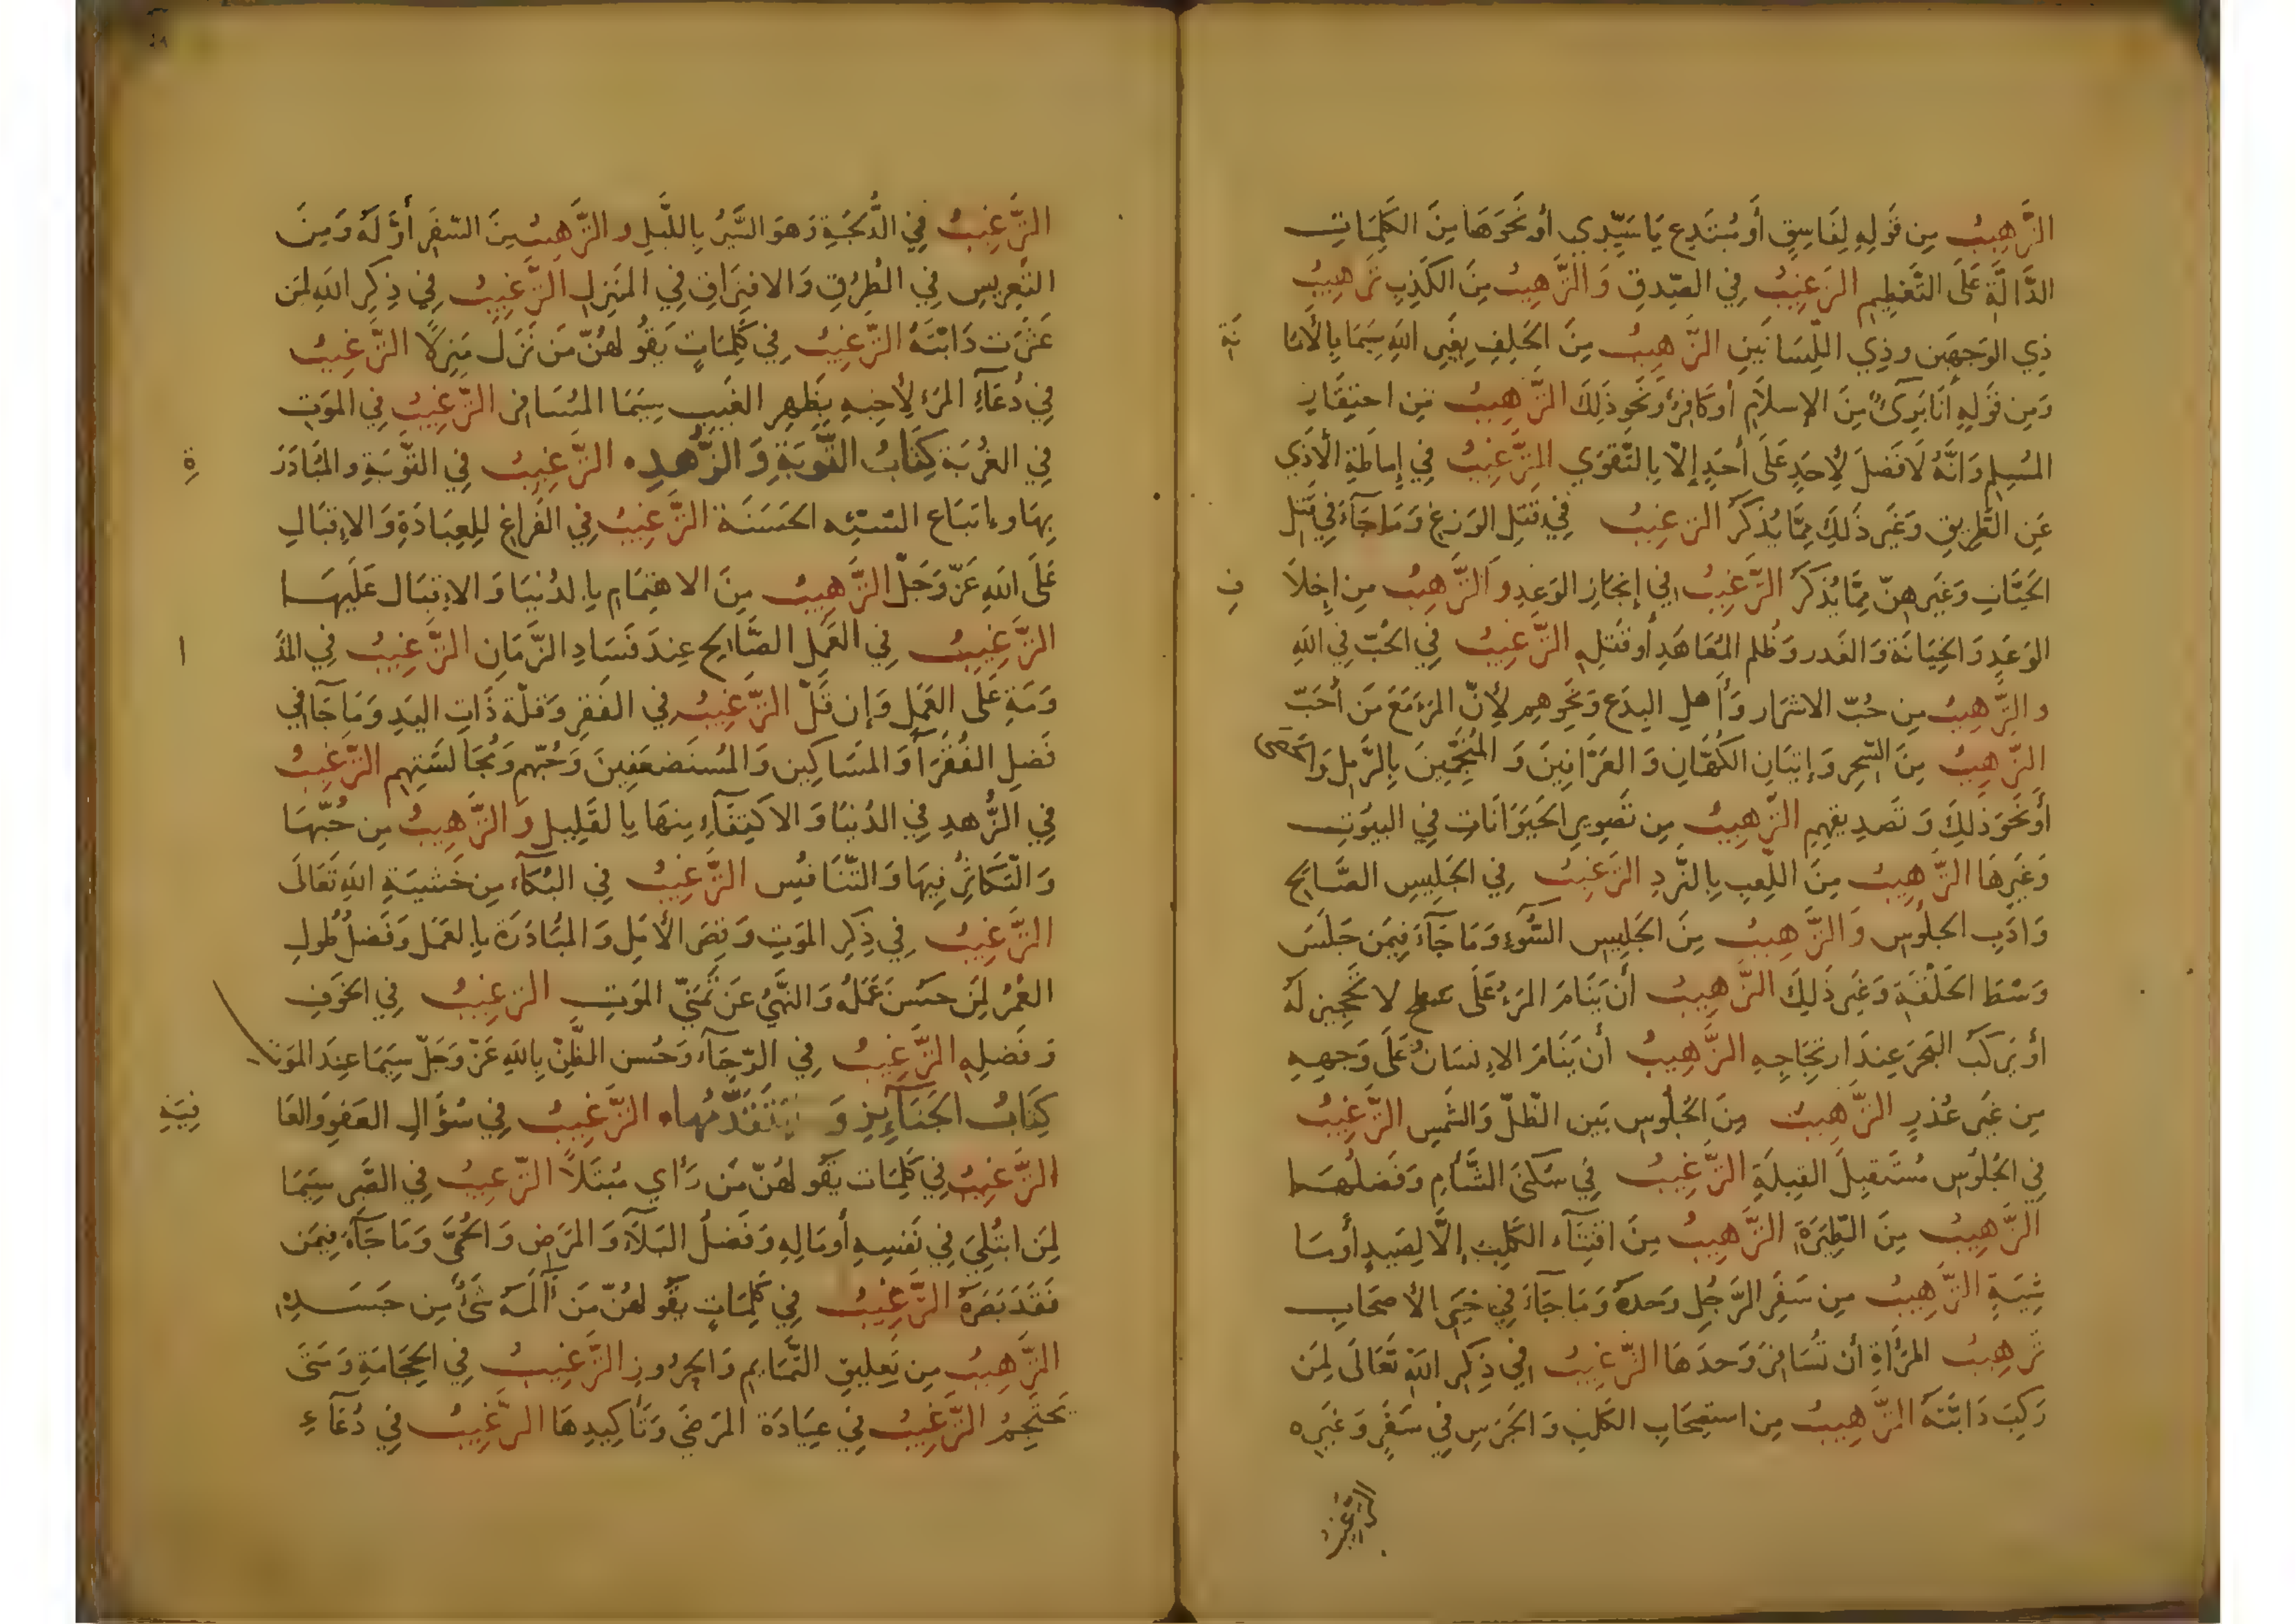 الترهيبُ مِن قَولِهِ لِفَاسِقٍ أَو مُبتَدِعٍ يَا سَيِّدِي أو نَحوَهَا مِنَ الكَلِمَاتِ
الدَّالَّةِ عَلَى التَّعظِيمِ الترغيبُ في الصِّدقِ وَالترهيبُ مِنَ الكَذِبِ ترهيبُ
ذِي الوَجهَينِ وذِي اللِّسَانَينِ الترهيبُ مِنَ الحَلِفِ بِغَيرِ اللهِ سِيَمَا بِالأَمَا نَةِ
وَمِن قَولِهِ أنَا بَرِىءٌ مِنَ الإسلَامِ أو كَافِرٌ وَنَحوِ ذَلِكَ الترهيبُ مِن احتِقَارِ
المُسلِمِ وَانَّهُ لَا فَضلَ لِأَحَدٍ عَلَى أَحَدٍ إلَّا بِالتَّقوَي الترغيبُ فِي إِمَاطَةِ الأَذَي
عَنِ الطَّرِيقِ وَغَيرِ ذَلِكَ مِمَّا يُذكَرُ الترغيبُ فِي قَتلِ الوَزغِ وَمَا جَآءَ فِي قَتلِ
الحَيَّاتِ وَغَيرِهِنَّ مِمَّا يُذكَرُ الترغيبُ فِي إنجَازِ الوَعدِ وَالترهيبُ مِن إِخلَا فِ
الوَعدِ وَالخِيَانَةِ وَالغَدر وَظُلمِ المُعَاهَدِ أو قَتلِهِ الترغيبُ فِي الحُبّ فِي اللهِ
والترهيبُ مِن حُبّ الاشرَار وَأَهلِ البِدَع وَنَحوِهِم لِأَنّ المَرءَ مَعَ مَن أَحَبّ
الترهيبُ مِنَ السّحرِ وَإتيَانِ الكُهَّانِ وَالعَرَّافِينَ وَالمُنَجِّمِينَ بِالرَّملِ وَالحَصَى
أو نَحوِ ذَلِكَ وَتَصدِيقهِم الترهيبُ مِن تَصوِيرِ الحَيَوَانَاتِ فِي البيُوتِ
وَغَيرِهَا الترهيبُ مِنَ اللّعِبِ بِالنَّردِ الترغيبُ فِي الجَلِيسِ الصَّالِحِ
وَادَبِ الجلُوسِ وَالترهيبُ مِنَ الجَلِيسِ السُّوءِ وَمَا جَآءَ فِيمَن جَلَسَ
وَسْطَ الحَلْقَةِ وَغَيرِ ذَلِكَ الترهيبُ أن يَنَامَ المَرءُ عَلَى سطح لا تَحجِيرَ لَهُ
أو يَركَب البَحرَ عِندَ ارتِجَاجِهِ الترهيبُ أن يَنَامَ الإنسَانُ عَلَى وَجهِهِ
مِن غَيرِ عُذرٍ الترهيبُ مِنَ الجُلُوسِ بَينَ الظّلّ وَالشَّمسِ الترغيبُ
فِي الجُلُوسِ مُستَقبِلَ القِبلَةِ الترغيبُ فِي سُكنَى الشَّأمِ وَفَضلُهَا
الترهيبُ مِنَ الطِّيَرَةِ الترهيبُ مِنَ اقتِنَآءِ الكَلبِ إلَّا لِصَيدٍ أو مَا
شِيَةٍ الترهيبُ مِن سَفَرِ الرَّجُلِ وَحدَهُ وَمَا جَآءَ فِي خَيرِ الأَصحَابِ
ترهيبُ المَرأةِ أن تُسَافِرَ وَحدَهَا الترغيبُ فِي ذِكرِ اللهِ تَعَالَى لِمَن
رَكِبَ دَابَّتَهُ الترهيبُ مِن استصِحَابِ الكَلبِ وَالجَرَسِ فِي سَفَرٍ وَغَيرِه
الترغيبُ
الترغيبُ فِي الدُّلجَةِ وَهوَ السَّيرُ بِاللَّيلِ والترهيبُ مِنَ السّفَرِ أوَّلَهُ وَمِنَ
التَّعرِيسِ فِي الطُّرُقِ وَالافتِرَاقِ فِي المَنزِلِ الترغيبُ فِي ذِكرِ اللهِ لِمَن
عَثَرَت دَابَّتَهُ الترغيبُ فِي كَلِمَاتٍ يَقُولهُنّ مَن نَزَلَ مَنزِلًا الترغيبُ
فِي دُعَآءِ المَرءِ لِأَخِيهِ بِظَهرِ الغَيبِ سِيَمَا المُسَافِر الترغيبُ فِي المَوتِ
فِي الغُربَة كِتَابُ التَّوبَةِ وَالزُّهدِ الترغيبُ فِي التَّوبَةِ والمُبَادَرَ ةِ
بِهَا وإتبَاع السّيّئه الحَسَنَة الترغيبُ فِي الفَراغِ لِلعِبَادَةِ وَالإِقبَالِ
عَلَى اللهِ عَزّ وَجَلّ الترهيبُ مِنَ الاهتِمَامِ بِالدُنيَا وَالإقبَال عَلَيهَا
الترغيبُ فِي العَمَلِ الصَّالِحِ عِندَ فَسَادِ الزَّمَانِ الترغيبُ فِي المُدَ ا
وَمَةِ عَلَى العَمَلِ وَإن قَلّ الترغيبُ فِي الفَقرِ وَقلّة ذَاتِ اليَدِ وَمَا جَآءَ فِي
فَضلِ الفُقَرَآءِ وَالمَسَاكِين وَالمُستَضعَفِينَ وَحُبّهم وَمُجَالَسَتِهِم الترغيبُ
فِي الزُّهدِ فِي الدُنيَا وَالاكتِفَآءِ مِنهَا بِالقَلِيلِ وَالترهيبُ مِن حُبّهَا
وَالتَّكَاثُرِ فِيهَا وَالتَّنَافُس الترغيبُ فِي البُكَآءِ مِن خَشيَةِ اللهِ تَعَالَى
الترغيبُ فِي ذِكرِ المَوتِ وَقِصَرِ الأَمَلِ وَالمُبَادَرَةِ بِالعَمَلِ وَفَضلُ طُولِ
العُمُرِ لِمَن حَسُنَ عَمَلُهُ وَالنَّهيُ عَن تَمَنّي المَوتِ الترغيبُ فِي الخَوفِ
وَفَضلِهِ الترغيبُ فِي الرّجَآءِ وَحُسن الظّنّ بِاللهِ عَزّ وَجَلّ سِيَمَا عِندَ المَوتِ
كِتَابُ الجَنَآئِزِ وَ يَتَقَدَّمُهَا الترغيبُ فِي سُؤَالِ العَفوِ وَالعَا فِيَةِ
الترغيبُ فِي كَلِمَات يَقُولهُنّ مَن رَأي مُبتَلًا الترغيبُ فِي الصَّبرِ سِيَمَا
لِمَن ابتُلِيَ فِي نَفسِهِ أو مَالِهِ وَفَضلُ البَلَآءِ وَالمَرَضِ وَالحُمَّى وَمَا جَآءَ فِيمَن
فَقَدَ بَصَرَهُ الترغيبُ فِي كَلِمَاتٍ يَقُولهُنّ مَن آلَمَهُ شَىءٌ مِن جَسَدِهِ
الترهيبُ مِن تَعلِيقِ التَّمَايِم وَالحُرُوزِ الترغيبُ فِي الحِجَامَةِ وَمَتَى
تَحتَجِمُ الترغيبُ فِي عِيَادَة المَرضَى وَتَأكِيدِهَا الترغيبُ فِي دُعَآءِ